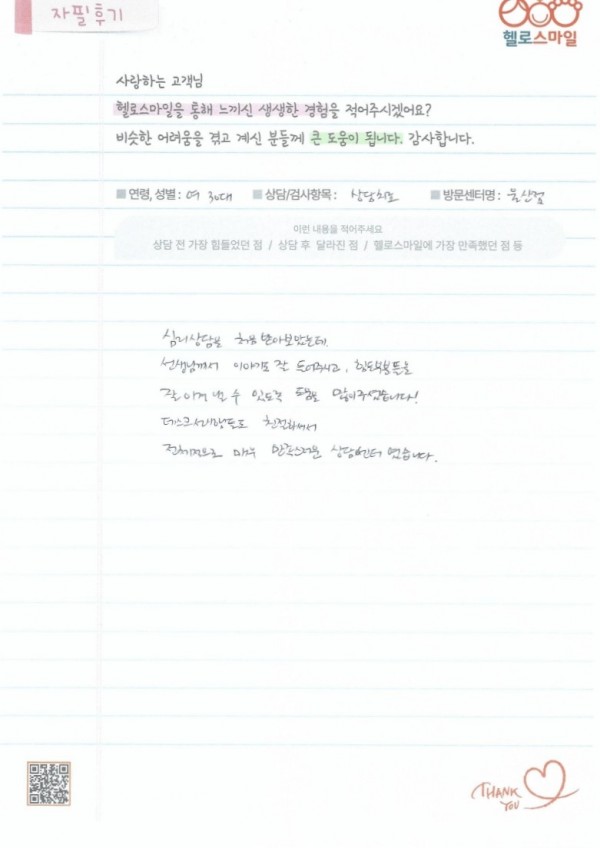 자필후기
헬로스마일
사랑하는 고객님
헬로스마일을 통해 느끼신 생생한 경험을 적어주시겠어요?
비슷한 어려움을 겪고 계신 분들께 큰 도움이 됩니다. 감사합니다.
연령, 성별 : 여 30대 상담/검사항목 : 상담치료 방문센터명 : 울산점
이런 내용을 적어주세요
상담 전 가장 힘들었던 점 / 상담 후 달라진 점 / 헬로스마일에 가장 만족했던 점 등
심리상담을 처음 받아보았는데
선생님께서 이야기도 잘 들어주시고, 힘든부분들을
잘 이겨 낼 수 있도록 도움을 많이주었습니다!
데스크 친절하셔서
전체적으로 매우 만족스러운 상담센터 였습니다.
THANK YOU